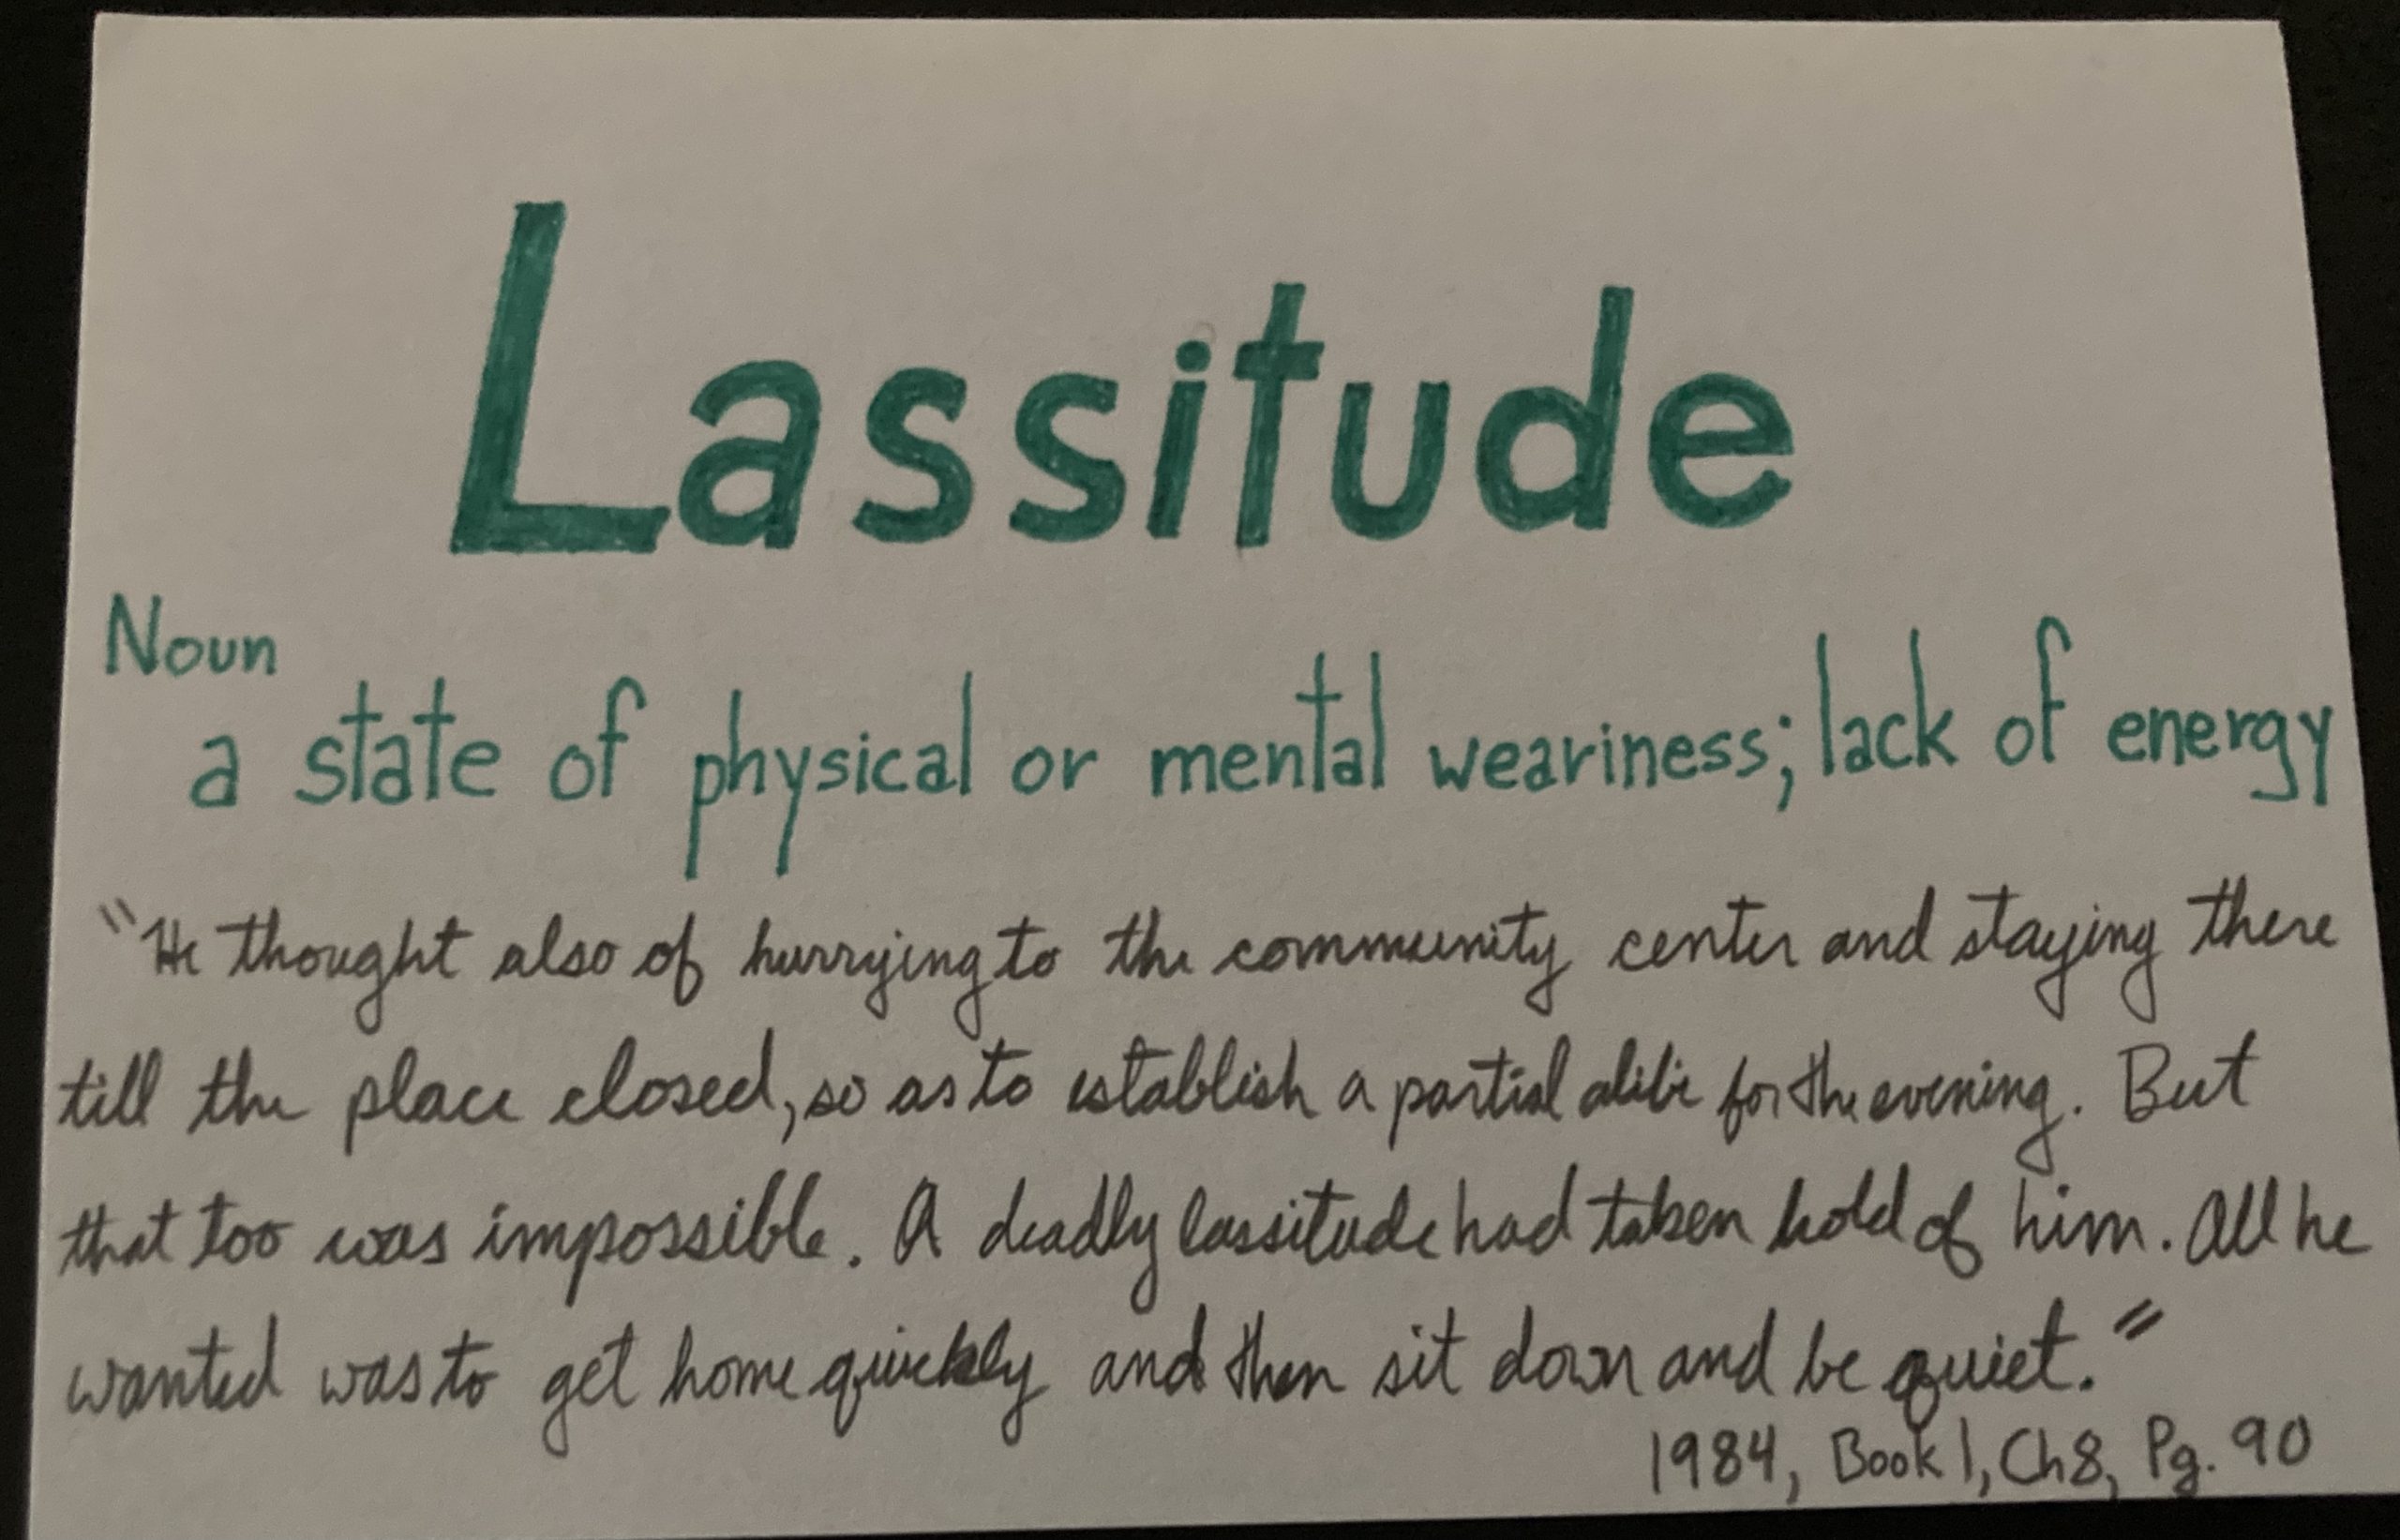 Lassitude
Noun
a state of physical or mental weariness; lack of energy
"He thought also of hurrying to the community center and staying there
till the place closed, so as to establish a partial alibi for the evening. But
that too was impossible. A deadly lassitude had taken hold of him. All he
wanted was to get home quickly and then sit down and be quiet."
1984, Book 1, Ch 8, Pg. 90